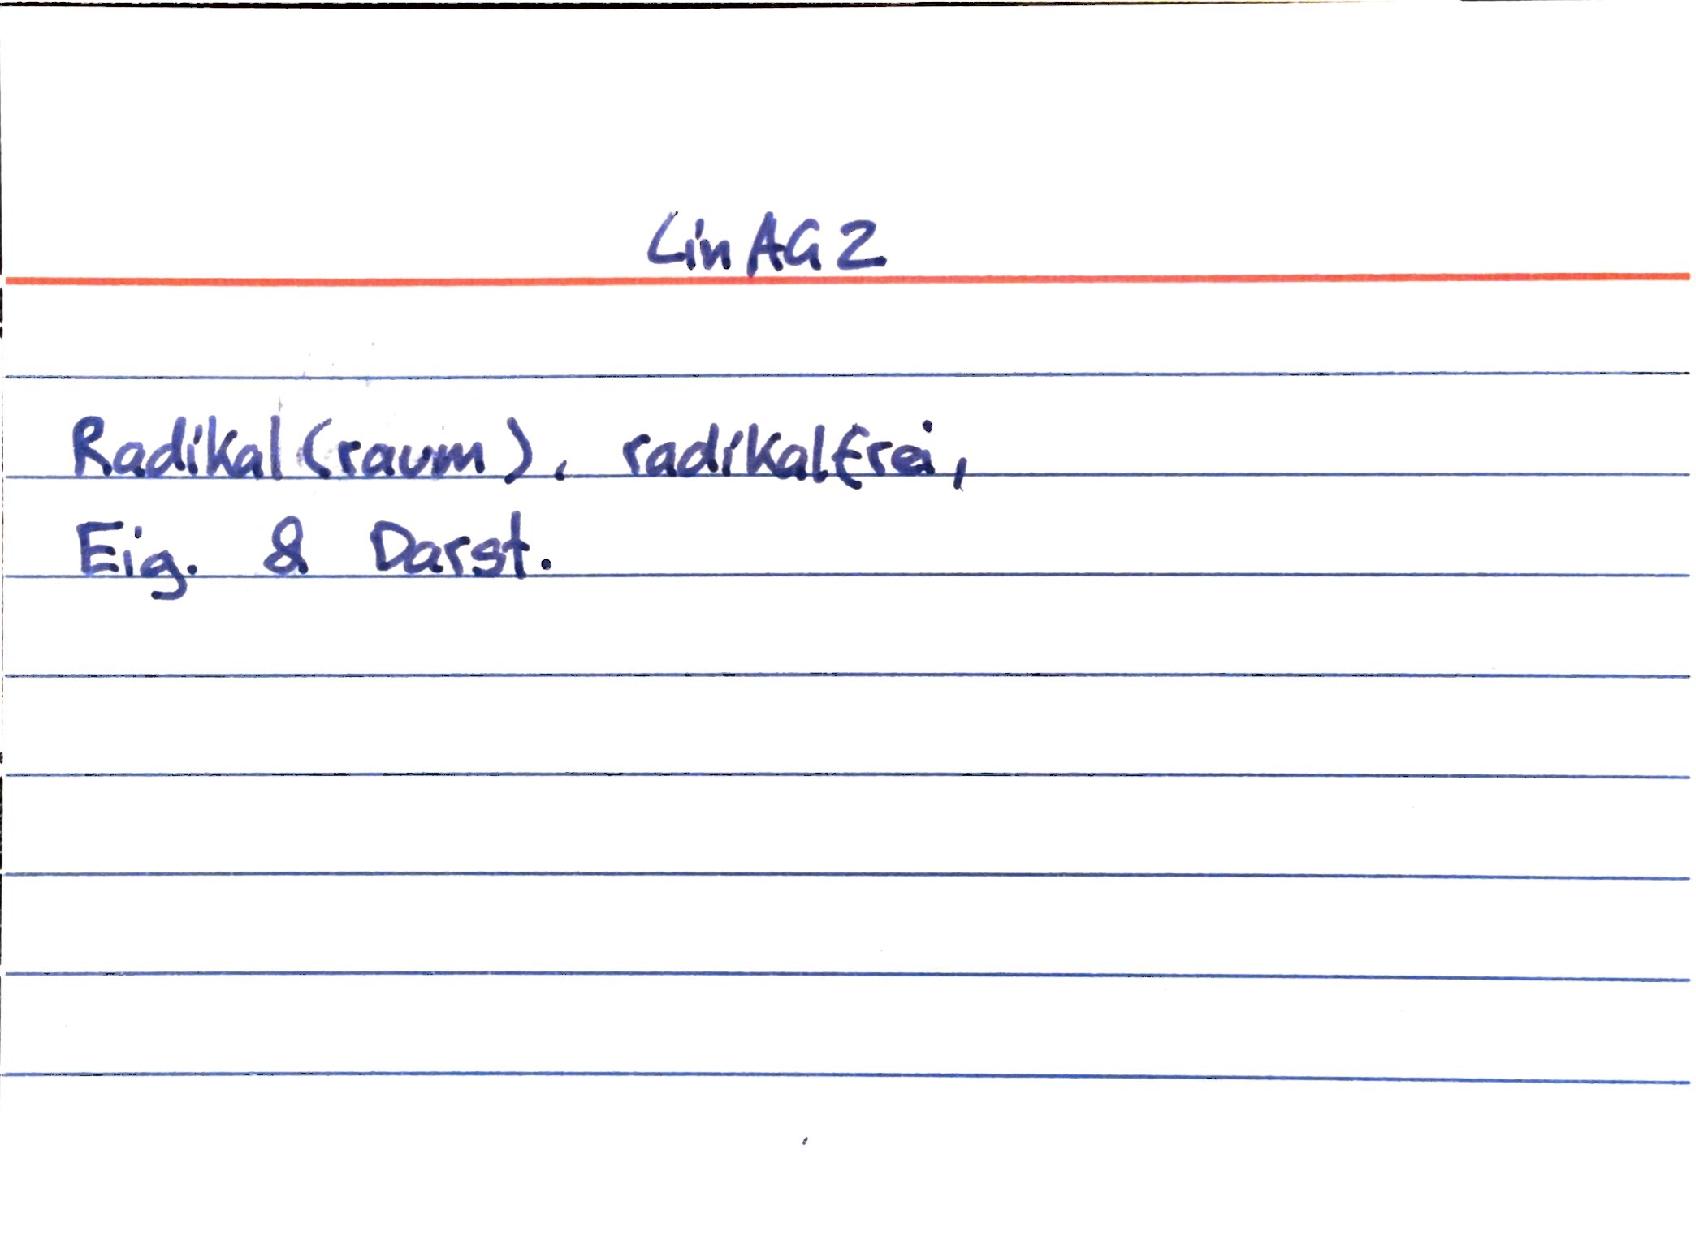 LinAG 2
Radikal(raum), radikalfrei,
Eig. & Darst.